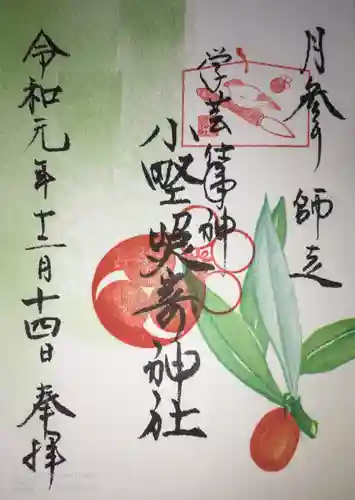 月参り 師走
学芸筆神
小野照崎神社
令和元年十二月十四日 奉拝